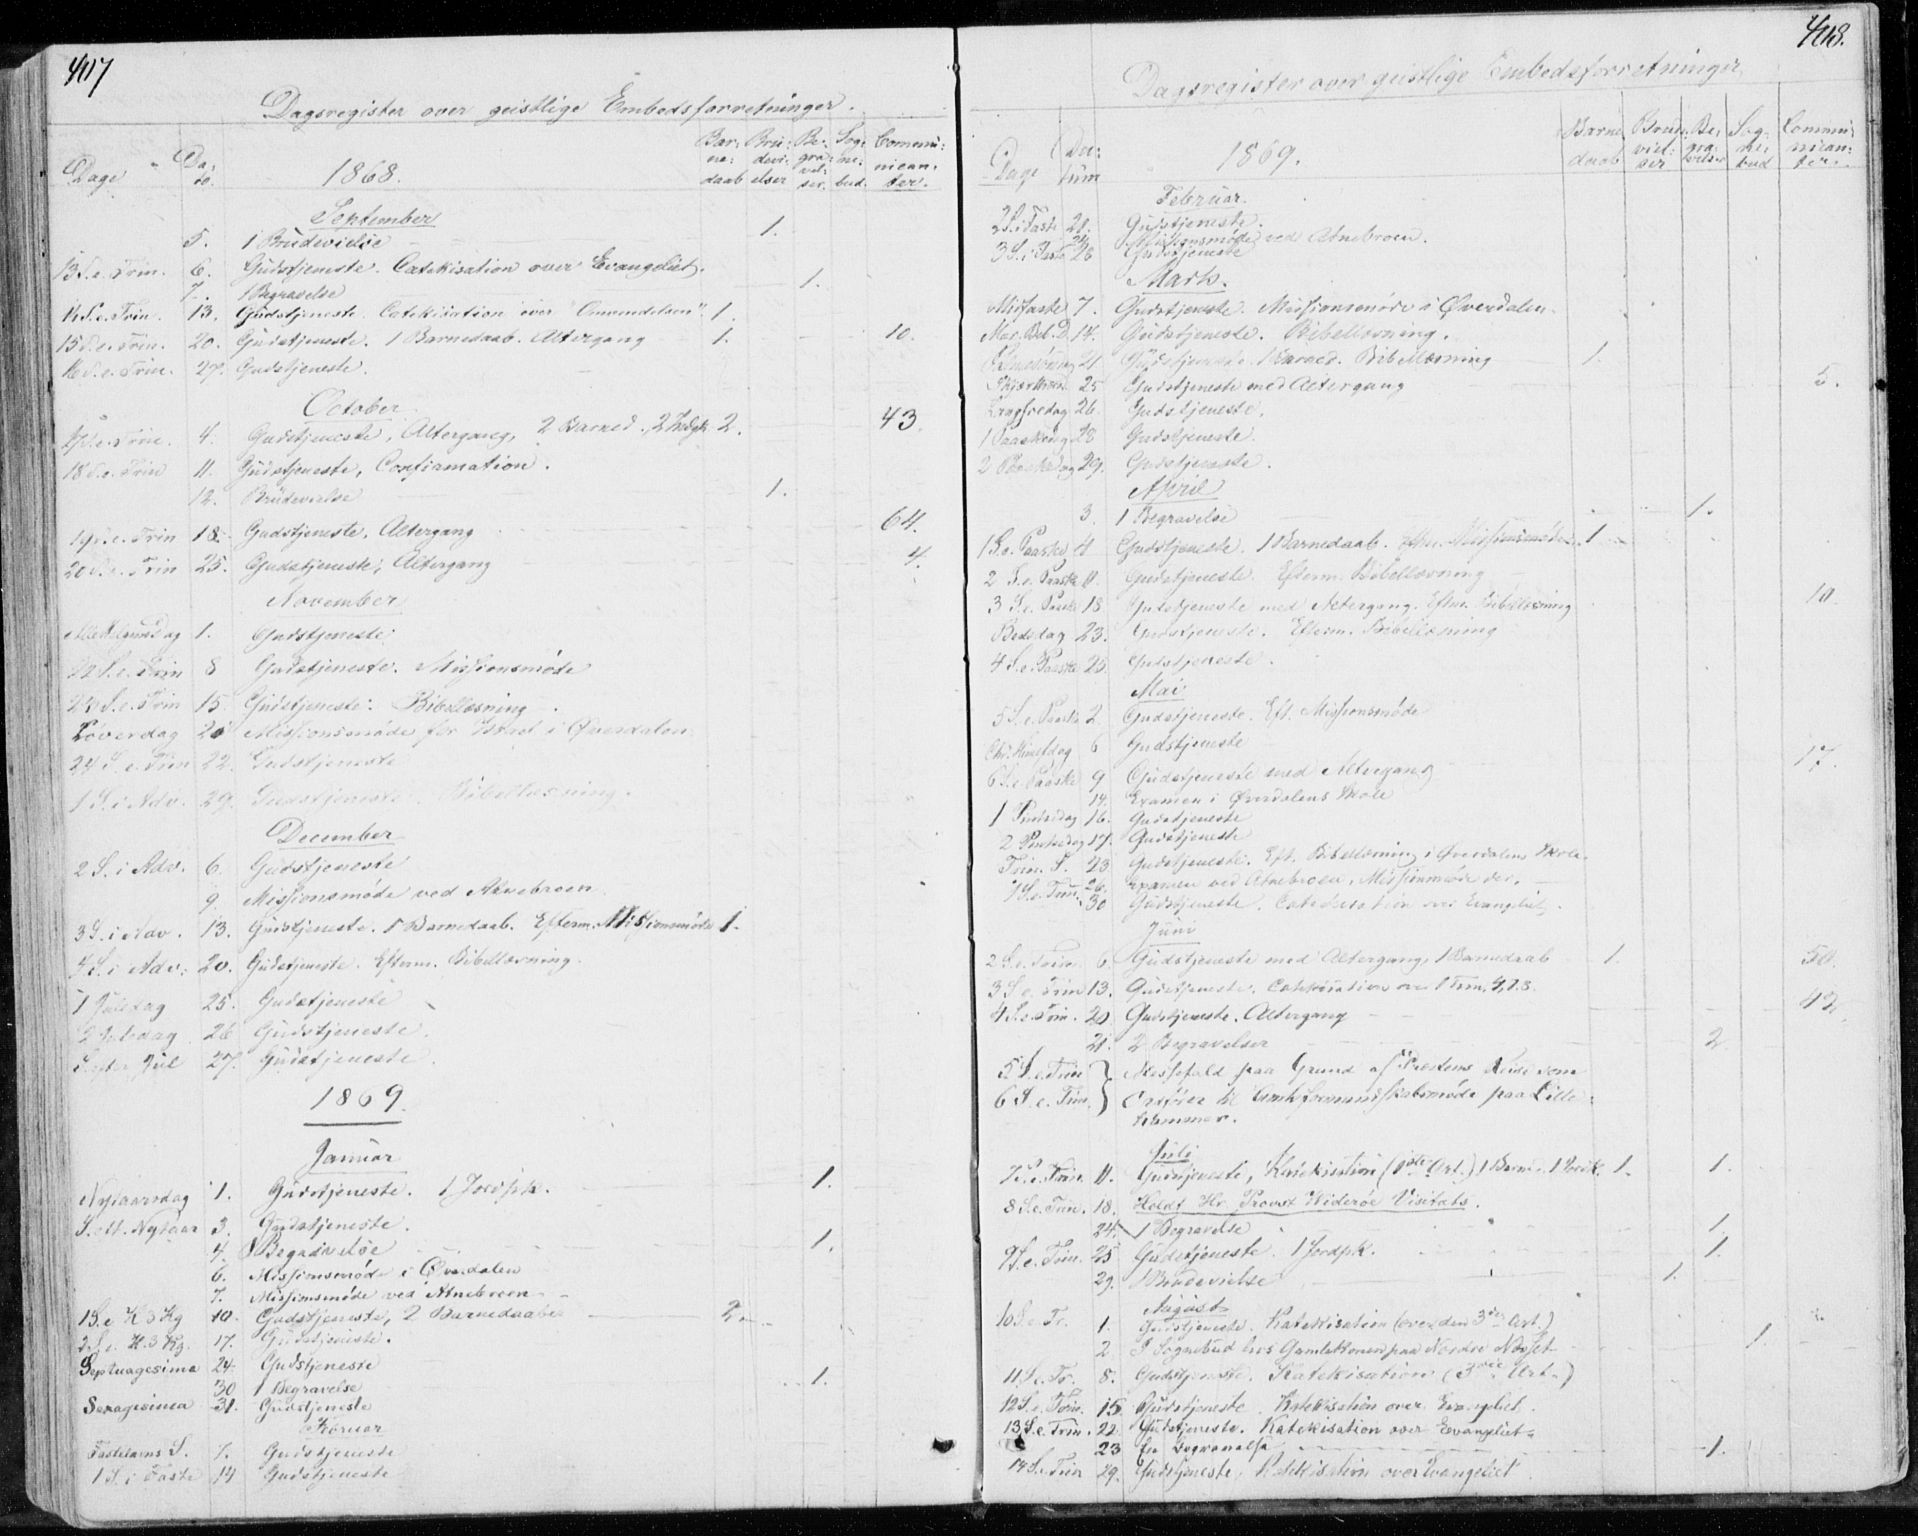 407
Dagsregister over geistlige Embedsforretninger.
Dage Dato. 1868. Barnedaab Brudevielser Begravelser. Sognebud. Communicanter.
September
5. 1 Brudevielse 1.
13 S. e. Trin. 6. Gudstjeneste. Catekisation over Evangeliet.
7. 1 Begravelse 1.
14 S. e. Trin. 13. Gudstjeneste. Catekisation over "Omvendelsen" 1.
15 S. e. Trin. 20. Gudstjeneste. 1 Barnedaab. Altergang 1. 10.
16 S. e. Trin. 27. Gudstjeneste.
October
17 S. e. Trin. 4. Gudstjeneste, Altergang, 2 Barned., 2 2. 43.
18 S. e. Trin 11. Gudstjeneste, Confirmation.
12. Brudevielse 1.
19 S. e. Trin 18. Gudstjeneste, Altergang 64.
20 S. e. Trin 25. Gudstjeneste, Altergang 4.
November
Allehelgensdag 1. Gudstjeneste.
22 S. e. Trin 8 Gudstjeneste. Missionsmøde
23 S. e. Trin 15. Gudstjeneste. Bibellæsning.
Løverdag Missionsmøde for Israel i Øverdalen
24 S. e. Trin 22. Gudstjeneste
1 S. i Adv. 29. Gudstjeneste. Bibellæsning.
December
2 S. i Adv. 6. Gudstjeneste
9. Missionsmøde ved Atnebroen
3 S. i Adv. 13. Gudstjeneste. 1 Barnedaab. Efterm. Missionsmøde 1.
4 S. i Adv. 20. Gudstjeneste. Efterm. Bibellæsning.
1 Juledag 25. Gudstjeneste
2 Juledag 26 Gudstjeneste.
S. efter Jul 27. Gudstjeneste.
1869.
Januar
Nytaarsdag 1. Gudstjeneste. 1 Jordpk. 1.
S. eft. Nytaar 3. Gudstjeneste.
4. 1 Begravelse 1.
6. Missionsmøde i Øverdalen
7. Missionsmøde ved Atnebroen
1 S. e. H 3 Kg 10. Gudstjeneste, 2 Barnedaabe 2.
2 S. e. H. 3 Kg. 17. Gudstjeneste.
Septuagesima 24. Gudstjeneste
30 1 Begravelse 1.
Sexagesima 31. Gudstjeneste
Februar
Fastelavns S. 7. Gudstjeneste
1 S. i Faste 14 Gudstjeneste
408.
Dagsregister over geistlige Embedsforretninger
Dage Datum 1869. Barnedaab Brudevielser Begravelser Sognebud Communicanter.
Februar.
2 S. i Faste 21. Gudstjeneste.
24 Missionsmøde ved Atnebroen.
3 S. i Faste 28 Gudstjeneste
Marts.
Midfaste 7. Gudstjeneste. Missionsmøde i Øverdalen.
Mar. Beb. D. 14. Gudstjeneste. Bibellæsning.
Palmesøndag 21 Gudstjeneste. 1 Barned. Bibellæsning 1.
Skjærthorsd. 25 Gudstjeneste med Altergang 5.
Langfredag 26. Gudstjeneste.
1 Paaskedag 28 Gudstjeneste.
2 Paaskedag 29. Gudstjeneste.
April
3. 1 Begravelse 1.
1 S. e. Paaske 4 Gudstjeneste. 1 Barnedaab. Efterm. Missionsmøde 1
2 S. e. Paaske 11. Gudstjeneste. Efterm. Bibellæsning
3 S. e. Paaske 18 Gudstjeneste med Altergang. Efterm. Bibellæsning 10.
Bededag 23. Gudstjeneste. Efterm. Bibellæsning
4 S. e. Paaske 25. Gudstjeneste.
Mai
5 S. e. Paaske 2. Gudstjeneste. Eft. Missionsmøde
Chr. Himelfdag 6 Gudstjeneste
6 S. e. Paaske 9 Gudstjeneste med Altergang 17.
14. Examen i Øverdalens Skole
1 Pintsedag 16. Gudstjeneste
2 Pintsedag 17. Gudstjeneste
Trin. S. 23 Gudstjeneste. Eft. Bibellæsning i Øverdalens Skole.
26. Examen ved Atnebroen, Missionsmøde der.
1 S. e. Trin. 30 Gudstjeneste. Catekisation over Evangeliet.
Juni
2 S. e. Trin. 6. Gudstjeneste med Altergang, 1 Barnedaab 1. 50.
3 S. e. Trin 13. Gudstjeneste. Catekisation over 1 Tim. 4,7.8.
4 S. e. Trin. 20. Gudstjeneste. Altergang 42.
21. 2 Begravelser 2
5 S. e. Trin } Messefald paa Grund af Præstens Reise som
6 S. e. Trin. Ordfører til Amtsformandskabsmøde paa Lille-
hammer.
Juli
7 S. e. Trin. 11. Gudstjeneste, Katekisation (1ste Art.) 1 Barned. 1 Jordk. 1. 1.
8 S. e. Trin. 18. Holdt Hr. Provst Widerøe Visitats.
24. 1 Begravelse 1
9 S. e. Trin. 25 Gudstjeneste. 1 Jordpk. 1.
29. 1 Brudevielse 1.
August
10 S. e. Tr. 1. Gudstjeneste. Katekisation (over den 3die Art.)
2. I Sognebud hos Gamlekonen paa Nordre Nesset 1.
11 S. e. Tr. 8. Gudstjeneste. Katekisation (3die Art.)
12 S. e. Trin. 15 Gudstjeneste. Katekisation over Evangeliet.
13 S. e. Trin. 22 Gudstjeneste. Katekisation over Evangeliet.
23 En Begravelse 1.
14 S. e. Trin 29. Gudstjeneste. Katekisation over Evangeliet.